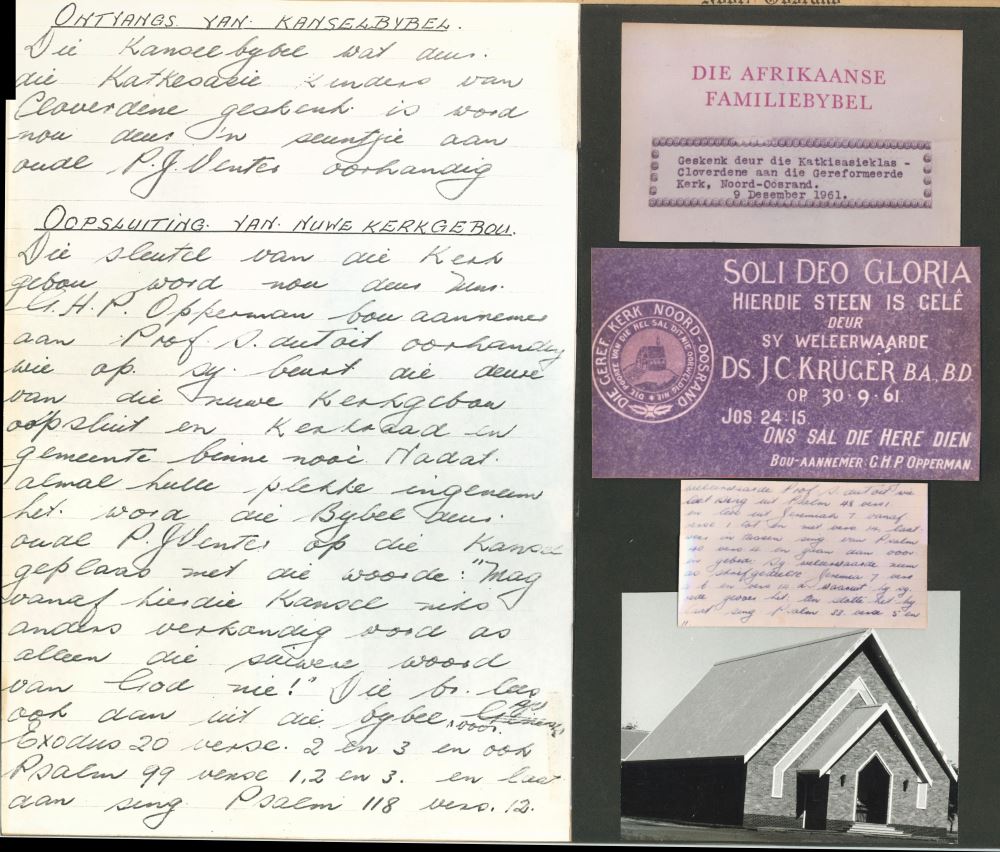 ONTVANGS VAN KANSELBYBEL.
Die Kanselbybel wat deur.
die Katkesasie kinders van
Cloverdene geskenk is word
nou deur 'n seuntjie aan
oudl P.J. Venter oorhandig
OOPSLUITING VAN NUWE KERKGEBOU.
Die sleutel van die Kerk
gebou word nou deur Mnr.
G.H.P. Opperman bou aannemer
aan Prof. S. du Toit oorhandig
wie op sy beurt die deure
van die nuwe Kerkgebou
oopsluit en Kerkraad en
gemeente binne nooi. Nadat.
almal hulle plekke ingeneem
het. word die Bybel deur.
oudl P.J Venter op die Kansel
geplaas met die woorde: "Mag
vanaf hierdie Kansel niks
anders verkondig word as
alleen die suiwere woord
van God nie!" Die br. lees
ook dan uit die bybel voor.
Exodus 20 verse. 2 en 3 en ook
Psalm 99 verse 1,2 en 3. en laat
dan sing Psalm 118 vers. 12.
DIE AFRIKAANSE
FAMILIEBYBEL
Geskenk deur die Katkisasieklas -
Cloverdene aan die Gereformeerde
Kerk, Noord-Oosrand.
9 Desember 1961.
SOLI DEO GLORIA
HIERDIE STEEN IS GELÊ
DEUR
SY WELEERWAARDE
DS. J.C. KRÜGER B.A., B.D
OP 30·9·61
JOS 24:15.
ONS SAL DIE HERE DIEN
BOU-AANNEMER: G.H.P. OPPERMAN
DIE GEREF. KERK NOORD-OOSRAND
DIE POORTE VAN DIE HEL SAL DIT NIE OORWELDIG NIE
Prof S. du Toit
laat sing uit Psalm 48 vers 1
en lees uit Jeremia 7 vanaf
verse 1 tot en met vers 14. laat
sing van Psalm
en gaan dan voor
in gebed. Sy weleerwaarde neem
as skrifgedeelte Jeremia 7 vers
sing Psalm